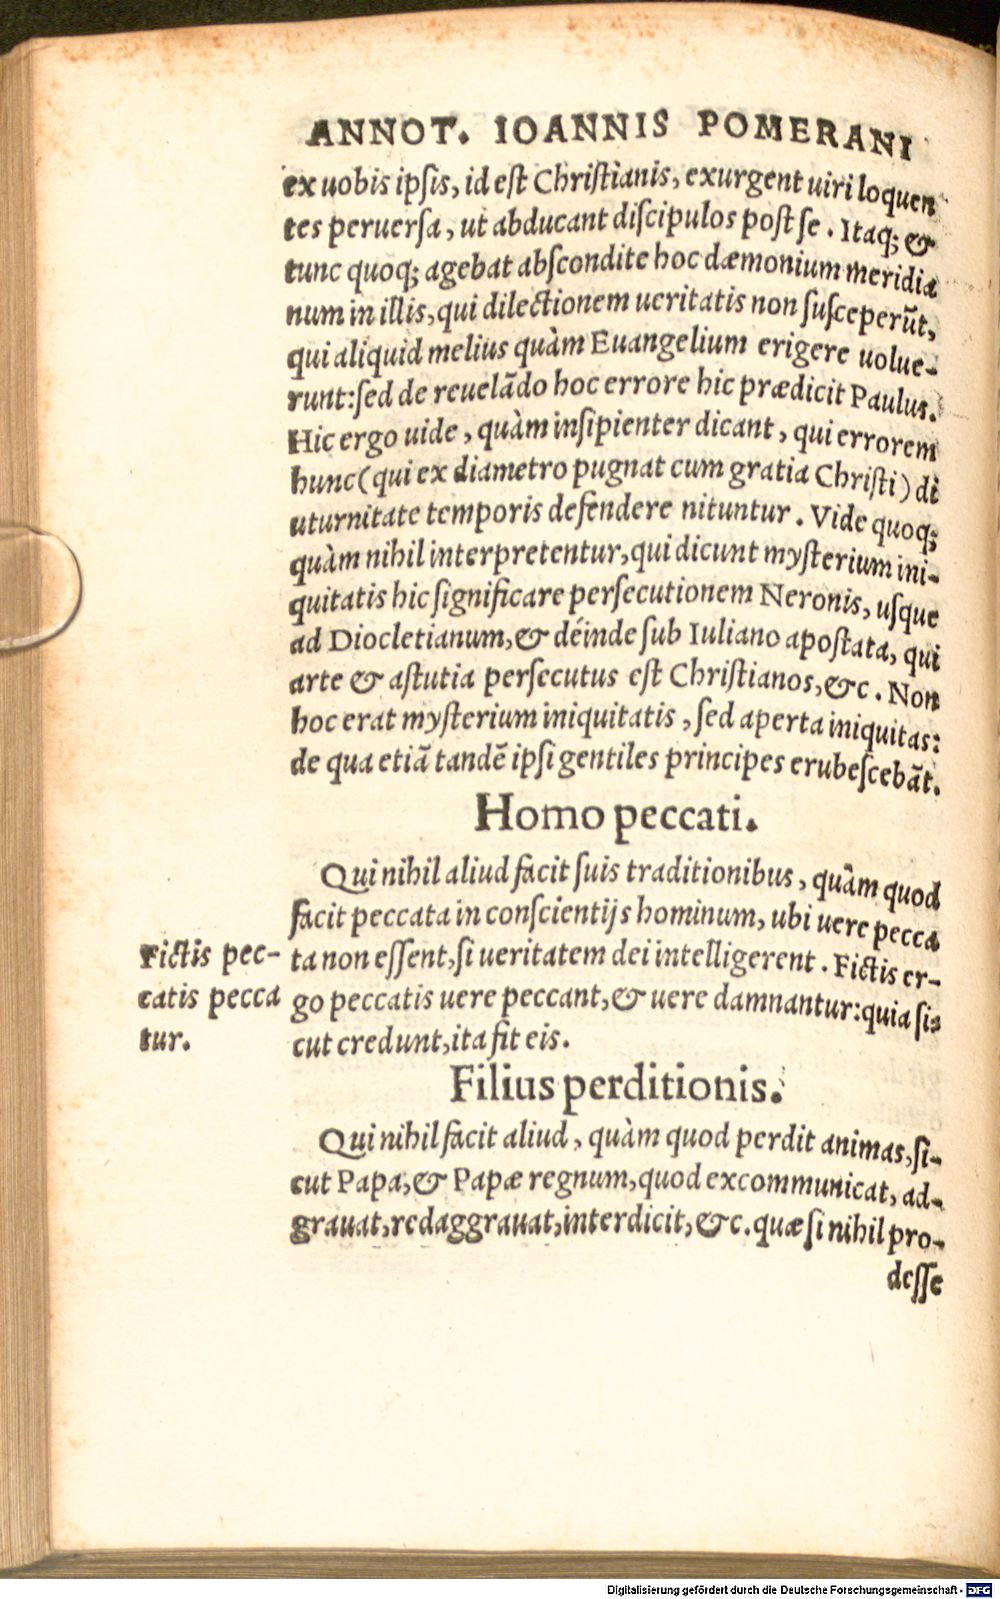 ANNOT. IOANNIS POMERANI
ex uobis ipsis, id est Christianis, exurgent uiri loquen
tes peruersa, ut abducant discipulos post se. Itaq; &
tunc quoq; agebat abscondite hoc dæmonium meridia
num in illis, qui dilectionem ueritatis non susceperūt,
qui aliquid melius quàm Euangelium erigere uolue-
runt: sed de reuelādo hoc errore hic prædicit Paulus.
Hic ergo uide, quàm insipienter dicant, qui errorem
hunc (qui ex diametro pugnat cum gratia Christi) di
uturnitate temporis defendere nituntur. Vide quoq;
quàm nihil interpretentur, qui dicunt mysterium ini-
quitatis hic significare persecutionem Neronis, usque
ad Diocletianum, & déinde sub Iuliano apostata, qui
arte & astutia persecutus est Christianos, &c. Non
hoc erat mysterium iniquitatis, sed aperta iniquitas:
de qua etiā tandē ipsi gentiles principes erubescebāt.
Homo peccati.
Qui nihil aliud facit suis traditionibus, quàm quod
facit peccata in conscientijs hominum, ubi uere pecca
ta non essent, si ueritatem dei intelligerent. Fictis er-
go peccatis uere peccant, & uere damnantur: quia si=
cut credunt, ita fit eis.
Fictis pec-
catis pecca
tur.
Filius perditionis.
Qui nihil facit aliud, quàm quod perdit animas, si-
cut Papa, & Papæ regnum, quod excommunicat, ad-
grauat, redaggrauat, interdicit, &c. quæ si nihil pro-
desse
Digitalisierung gefördert durch die Deutsche Forschungsgemeinschaft - DFG